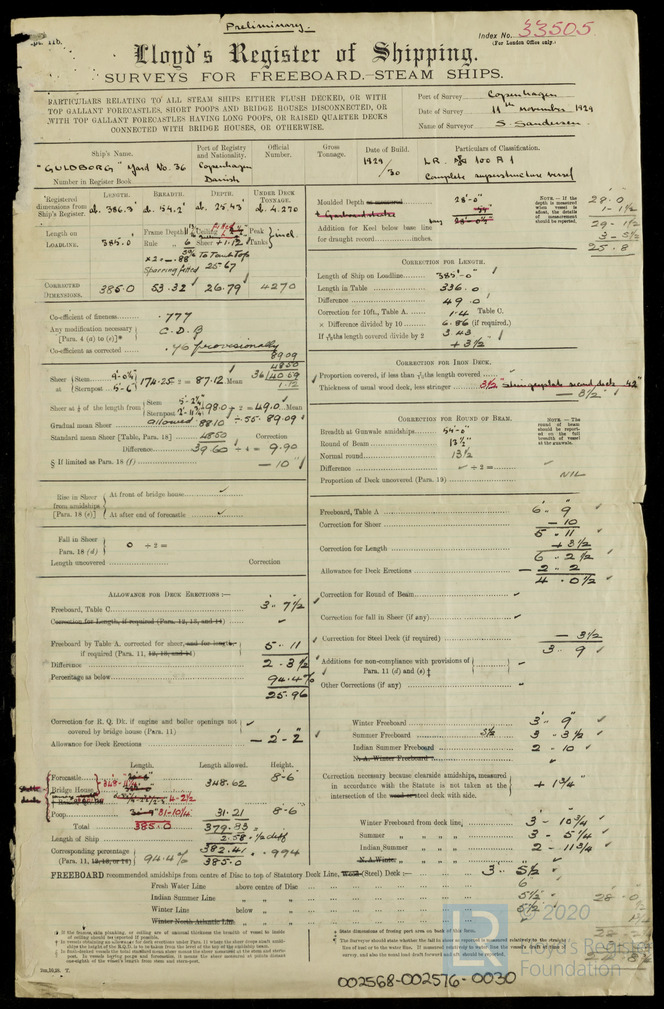 Preliminary.
Index No. 33505
(For London Office only.)
Lloyd's Register of Shipping.
SURVEYS FOR FREEBOARD.—STEAM SHIPS.
PARTICULARS RELATING TO ALL STEAM SHIPS EITHER FLUSH DECKED, OR WITH
TOP GALLANT FORECASTLES, SHORT POOPS AND BRIDGE HOUSES DISCONNECTED, OR
WITH TOP GALLANT FORECASTLES HAVING LONG POOPS, OR RAISED QUARTER DECKS
CONNECTED WITH BRIDGE HOUSES, OR OTHERWISE.
Port of Survey Copenhagen
Date of Survey 11th November 1929
Name of Surveyor S. Sandersen
Ship's Name.
"GULDBORG" Yard No. 36
Number in Register Book
Port of Registry and Nationality.
Copenhagen
Danish
Official Number.
Gross Tonnage.
Date of Build.
1929/30
Particulars of Classification.
LR 100 A 1
Complete superstructure vessel
Registered dimensions from Ship's Register.
LENGTH. ab. 386.3'
BREADTH. ab. 54.2'
DEPTH. ab. 25.43'
UNDER DECK TONNAGE. ab. 4.270
Length on LOADLINE. 385.0'
Frame Depth
Rule 6
Ceiling
Sheer + 1.12
Peak Tanks incl.
To Tank Top
Sparring fitted 25.67
CORRECTED DIMENSIONS. 385.0 53.32 26.79 4270
Moulded Depth 28'-0"
Addition for Keel below base line
for draught record inches.
NOTE.—If the depth is measured when vessel is afloat, the details of measurement should be reported.
29.0
1-1½
29-1½
3-5½
25.8
Co-efficient of fineness .777
Any modification necessary C.D.B
[Para. 4 (a) to (e)]*
Co-efficient as corrected .76 provisionally
CORRECTION FOR LENGTH.
Length of Ship on Loadline 385'-0"
Length in Table 336.0
Difference 49.0
Correction for 10ft., Table A. 1.4 Table C.
× Difference divided by 10 6.86 (if required.)
If 6/10ths length covered divide by 2 3.43
+ 3½"
Sheer at Stem 9'-0¼"
Sternpost 5'-6"
174.25 ÷ 2 = 87.12 Mean
89.09
48.50
36)40.59
1.12
Sheer at ⅛ of the length from Stem 5'-2¼"
Sternpost 2'-11¾"
98.0 ÷ 2 = 49.0 Mean
Gradual mean Sheer allowed 88.10 ÷ .55 = 89.09
Standard mean Sheer [Table, Para. 18] 48.50 Correction
Difference 39.60 ÷ 4 = 9.90
§ If limited as Para. 18 (f) — 10"
CORRECTION FOR IRON DECK.
Proportion covered, if less than 6/10ths length covered
Thickness of usual wood deck, less stringer 3½"
— 3½"
CORRECTION FOR ROUND OF BEAM.
Breadth at Gunwale amidships 54'-0"
Round of Beam 13½"
Normal round 13½
Difference ÷ 2 =
Proportion of Deck uncovered (Para. 19) NIL
NOTE.—The round of beam should be reported on the full breadth of vessel at the gunwale.
Rise in Sheer from amidships [Para. 18 (e)]
At front of bridge house
At after end of forecastle
Fall in Sheer
Para. 18 (d) 0 ÷ 2 =
Length uncovered Correction
Freeboard, Table A 6. 9
Correction for Sheer — 10
5. 11
Correction for Length + 3½
6. 2½
Allowance for Deck Erections — 2. 2
4. 0½
Correction for Round of Beam
Correction for fall in Sheer (if any)
Correction for Steel Deck (if required) — 3½
3. 9
Additions for non-compliance with provisions of
Para. 11 (d) and (e) ‡
Other Corrections (if any)
ALLOWANCE FOR DECK ERECTIONS :—
Freeboard, Table C 3. 7½
Correction for Length, if required (Para. 12, 13, and 14)
Freeboard by Table A. corrected for sheer, and for length,
if required (Para. 11, 12, 13, and 14) 5. 11
Difference 2. 3½
Percentage as below 94.4%
25.96
Correction for R. Q. Dk. if engine and boiler openings not
covered by bridge house (Para. 11)
Allowance for Deck Erections — 2'- 2"
Length. Length allowed. Height.
Forecastle
Bridge House 348.62 8'-6"
Poop 31-10¼ 31.21 8'-6"
Total 385.0 379.83
2.58 ½ diff
Length of Ship 382.41 = .994
385.0
Corresponding percentage
(Para. 11, 12, 13, or 14) 94.4%
Winter Freeboard 3'- 9"
Summer Freeboard 5½ 3- 3½
Indian Summer Freeboard 2- 10
N. A. Winter Freeboard
Correction necessary because clearside amidships, measured
in accordance with the Statute is not taken at the
intersection of the wood or steel deck with side. + 1¾"
Winter Freeboard from deck line, 3- 10¾
Summer " " " " 3- 5¼
Indian Summer " " 2- 11¾
N. A. Winter
FREEBOARD recommended amidships from centre of Disc to top of Statutory Deck Line, Wood (Steel) Deck :— 3' 5½"
Fresh Water Line above centre of Disc 6
Indian Summer Line " " 5½
Winter Line below " " 5½
Winter North Atlantic Line
* If the frames, side planking, or ceiling are of unusual thickness the breadth of vessel to inside
of ceiling should be reported if possible.
‡ State dimensions of freeing port area on back of this form.
Dm.10,25. T.
© 2020
Lloyd's Register
Foundation
LR
002568-002576-0030